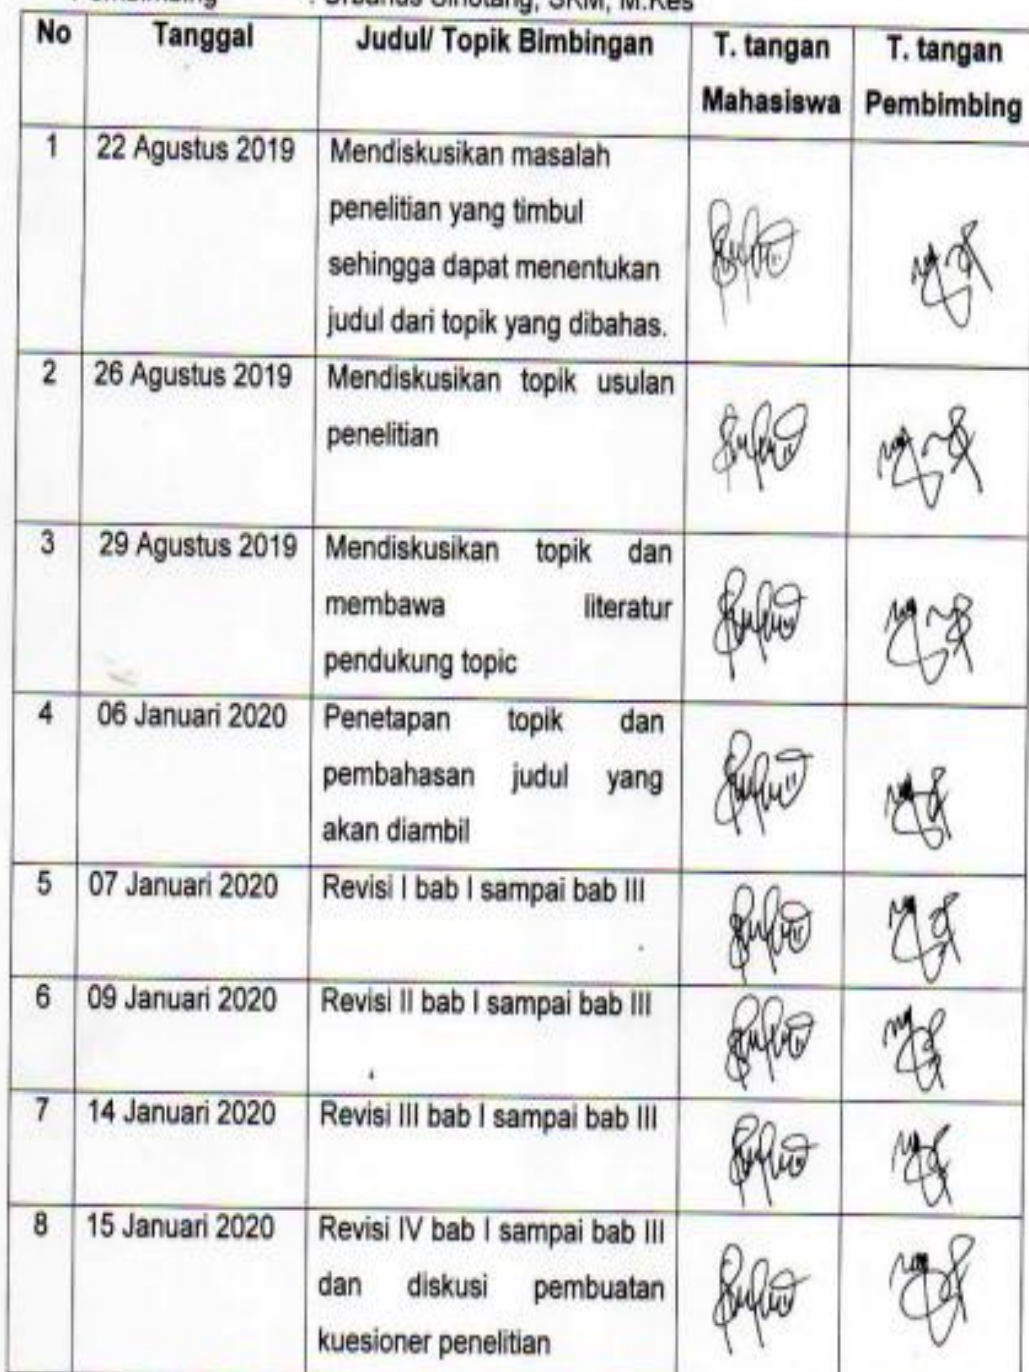 Pembimbing : Urbanus Sihotang, SKM, M.Kes
No Tanggal Judul/ Topik Bimbingan T. tangan Mahasiswa T. tangan Pembimbing
1 22 Agustus 2019 Mendiskusikan masalah
penelitian yang timbul
sehingga dapat menentukan
judul dari topik yang dibahas.
2 26 Agustus 2019 Mendiskusikan topik usulan
penelitian
3 29 Agustus 2019 Mendiskusikan topik dan
membawa literatur
pendukung topic
4 06 Januari 2020 Penetapan topik dan
pembahasan judul yang
akan diambil
5 07 Januari 2020 Revisi I bab I sampai bab III
6 09 Januari 2020 Revisi II bab I sampai bab III
7 14 Januari 2020 Revisi III bab I sampai bab III
8 15 Januari 2020 Revisi IV bab I sampai bab III
dan diskusi pembuatan
kuesioner penelitian